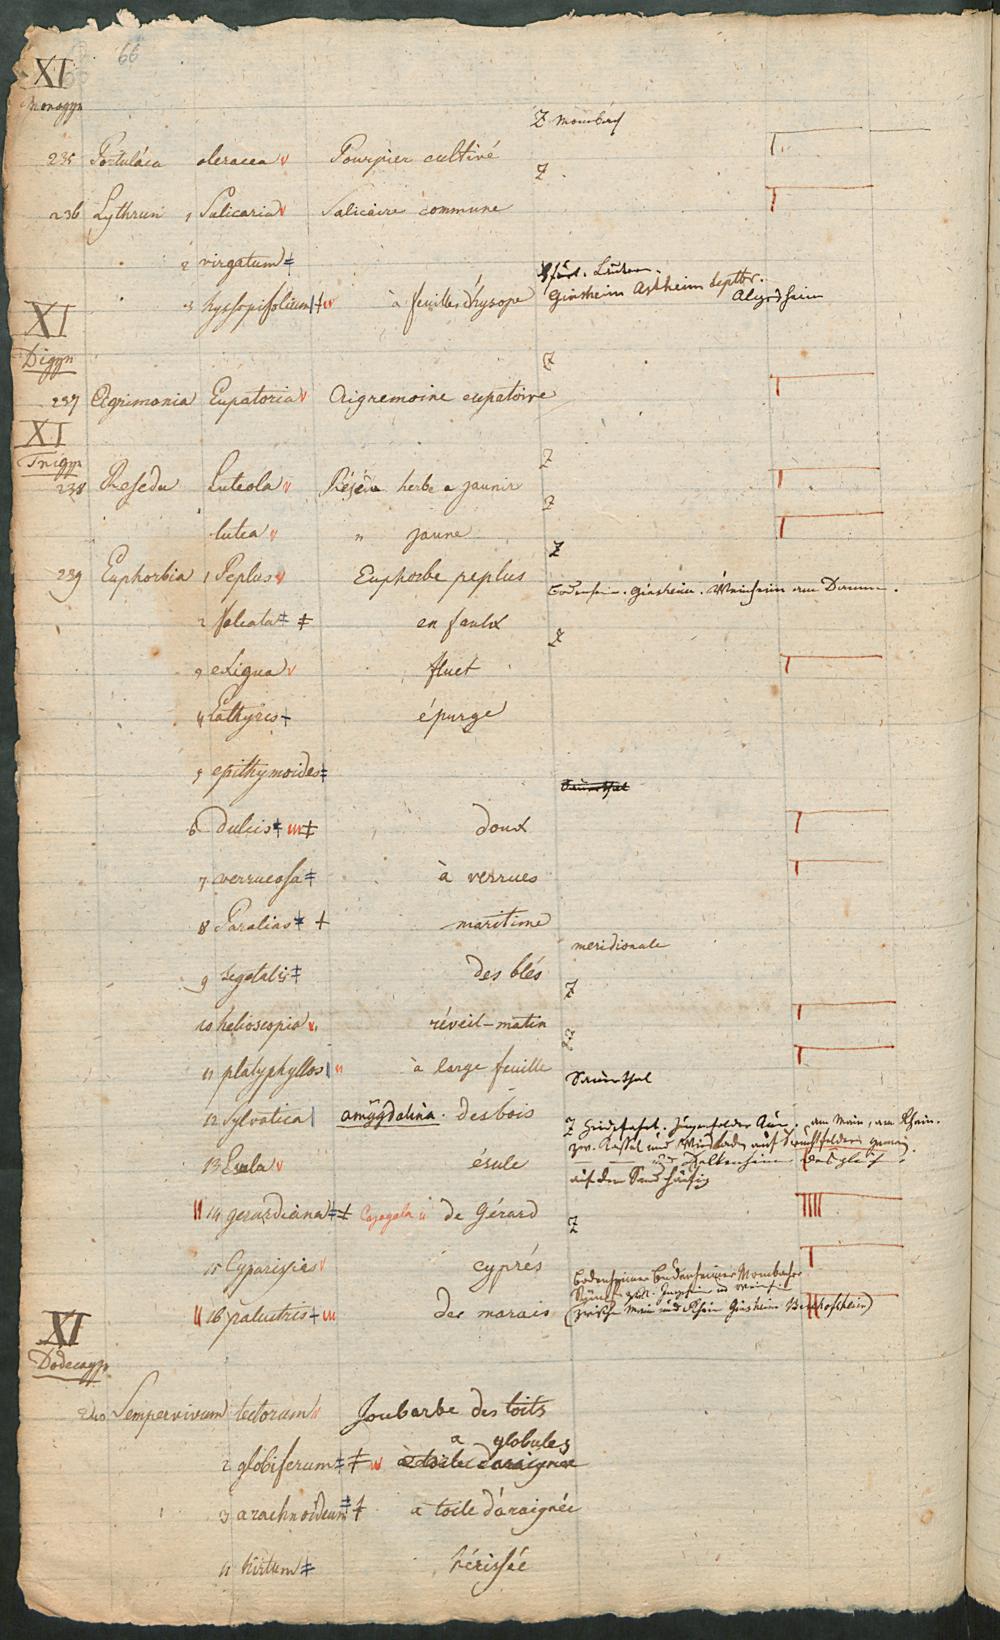 66
XI
Monogyn
Z Mombach
235 Portulaca oleracea v Pourpier cultivé
Z
236 Lythrum 1 Salicaria v Salicaire commune
2 virgatum ‡
3 hyssopifolium à feuilles d'hysope Ginsheim Astheim Septbr.
Algesheim
XI
Digyn
Z
237 Agrimonia Eupatoria v Aigremoine eupatoire
XI
Trigyn
Z
238 Reseda Luteola v Réséda herbe a jaunir
Z
lutea v " jaune
Z
239 Euphorbia 1 Peplus v Euphorbe peplus
Bodenheim. Ginsheim. Weinheim am Damm.
2 falcata ‡ ‡ en faulx
Z
3 exigua v fluet
4 Lathyris + épurge
5 epithymoides ‡
6 dulcis ‡ doux
7 verrucosa ‡ à verrues
8 Paralias ‡ + maritime
meridionale
9 segetalis ‡ des blés
Z
10 helioscopia v. réveil-matin
Z
11 platyphyllos à large feuille
Sauerthal
12 Sylvatica amÿgdalina. des bois
Z am Main, am Rhein.
zw. Kastel und Wiesbaden auf Brachfeldern gemein
13 Esula v ésule
auf dem Sand häufig
14 gerardiana ‡ ‡ de Gérard
Z
15 Cyparissias v cyprés
Bodenheimer Budenheimer Mombacher
16 palustris + des marais (zwisch Main und Rhein Ginsheim Bischofsheim)
XI
Dodecagyn
240 Sempervivum tectorum Joubarbe des toits
a globules
2 globiferum ‡ ‡ à toile d'araignée
3 arachnoideum ‡ ‡ a toile d'araignée
4 hirtum ‡ hérissée